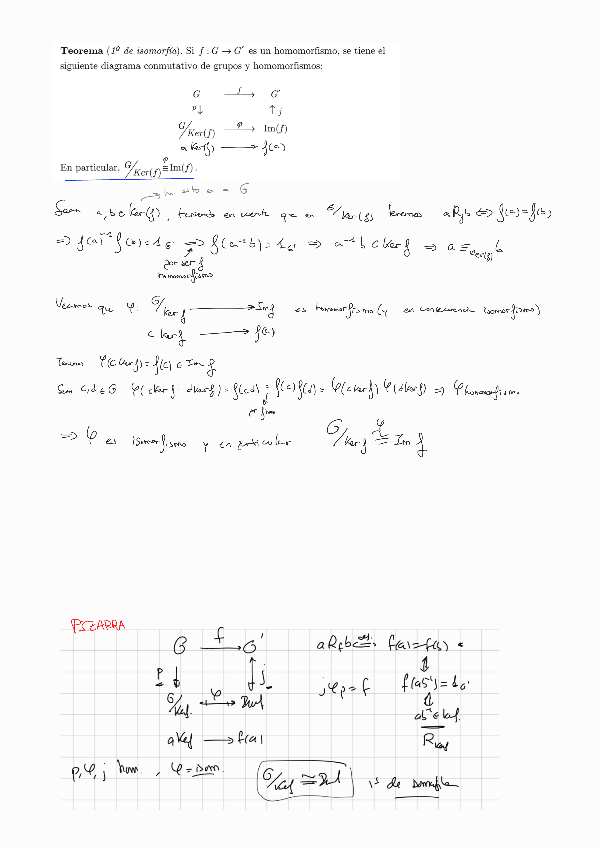 Teorema (1º de isomorfía). Si f : G → G′ es un homomorfismo, se tiene el
siguiente diagrama conmutativo de grupos y homomorfismos:
G f→ G′
p↓ ↑j
G/Ker(f) φ→ Im(f)
a Ker(f) → f(a)
En particular, G/Ker(f) ≅φ Im(f).
G
Sean a, b ∈ Ker(f), teniendo en cuenta que en G/Ker(f) tenemos aR_f b ⇔ f(a)=f(b)
⇒ f(a)⁻¹f(b)=1_G' ⇒ f(a⁻¹b)=1_G' ⇒ a⁻¹b ∈ Ker f ⇒ a ≡_Ker(f) b
por ser f
homomorfismo
Veamos que φ: G/Ker f → Im f es homomorfismo (y en consecuencia isomorfismo)
c Ker f → f(c)
Tenemos φ(c Ker f) = f(c) ∈ Im f
Sean c, d ∈ G φ(cKer f · dKer f) = f(cd) = f(c)f(d) = φ(cKer f) φ(dKer f) ⇒ φ homomorfismo
⇒ φ es isomorfismo y en particular G/Ker f ≅φ Im f
PIZARRA
G f→ G' aR_f b ⇔ f(a)=f(b)
p↓ ↕j ⇕
G/Kef φ↔ Imf jφp = f f(ab⁻¹)=1_G'
⇕
ab⁻¹∈Kef
aKef → f(a) R_Kef
p, φ, j hom. , φ = isom. G/Kef ≅ Imf 1º de isomorfía